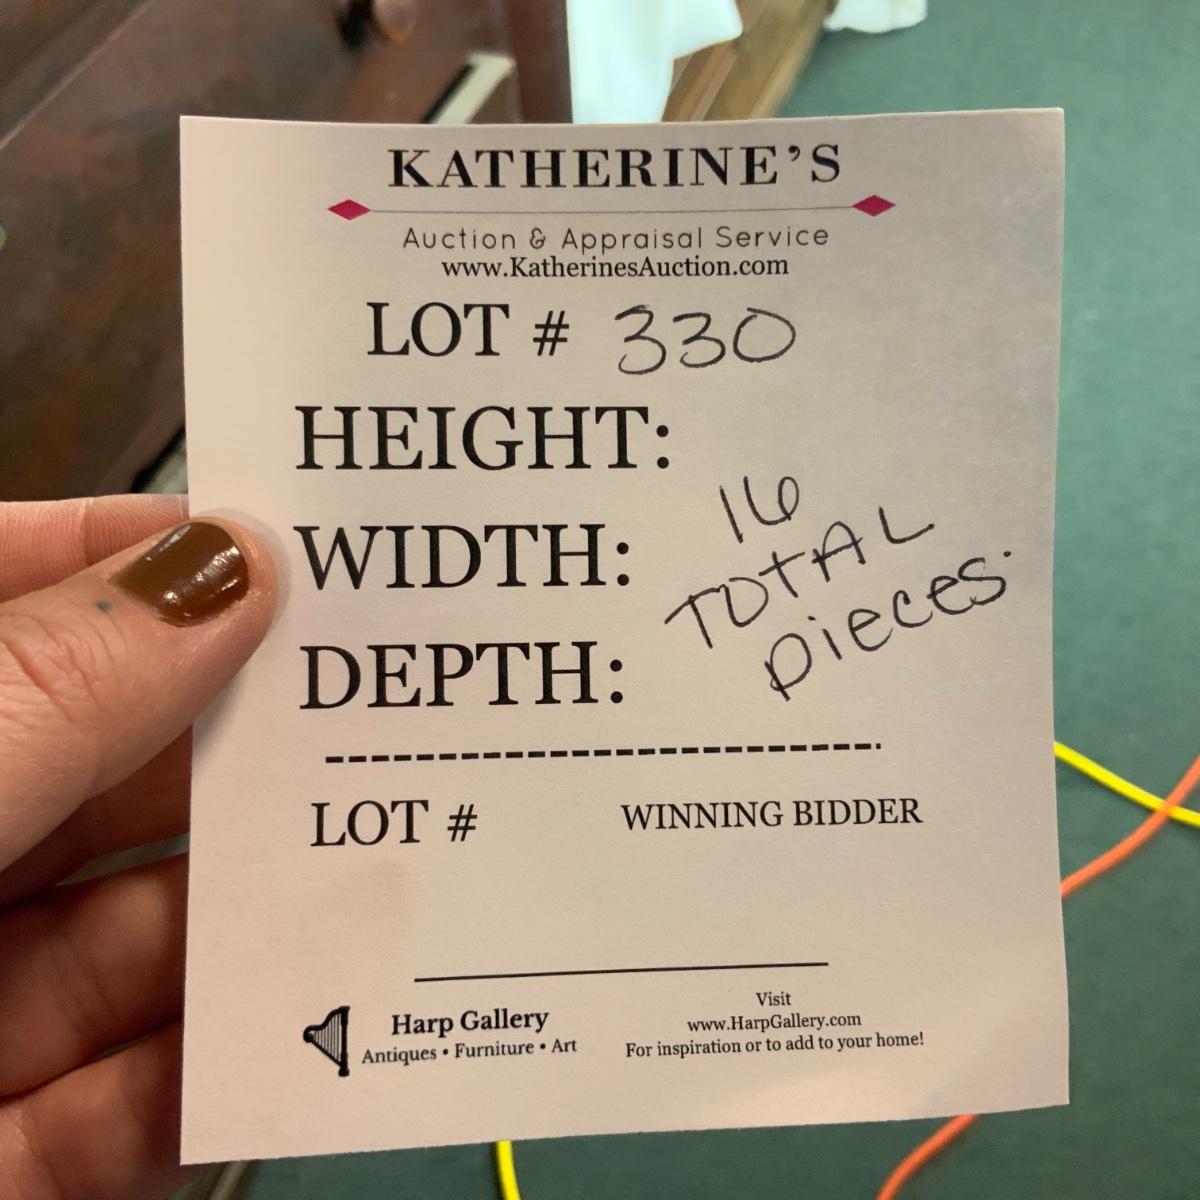 KATHERINE'S
Auction & Appraisal Service
www.KatherinesAuction.com
LOT # 330
HEIGHT:
WIDTH:
DEPTH:
16
TOTAL
pieces.
LOT # WINNING BIDDER
Harp Gallery
Antiques • Furniture • Art
Visit
www.HarpGallery.com
For inspiration or to add to your home!